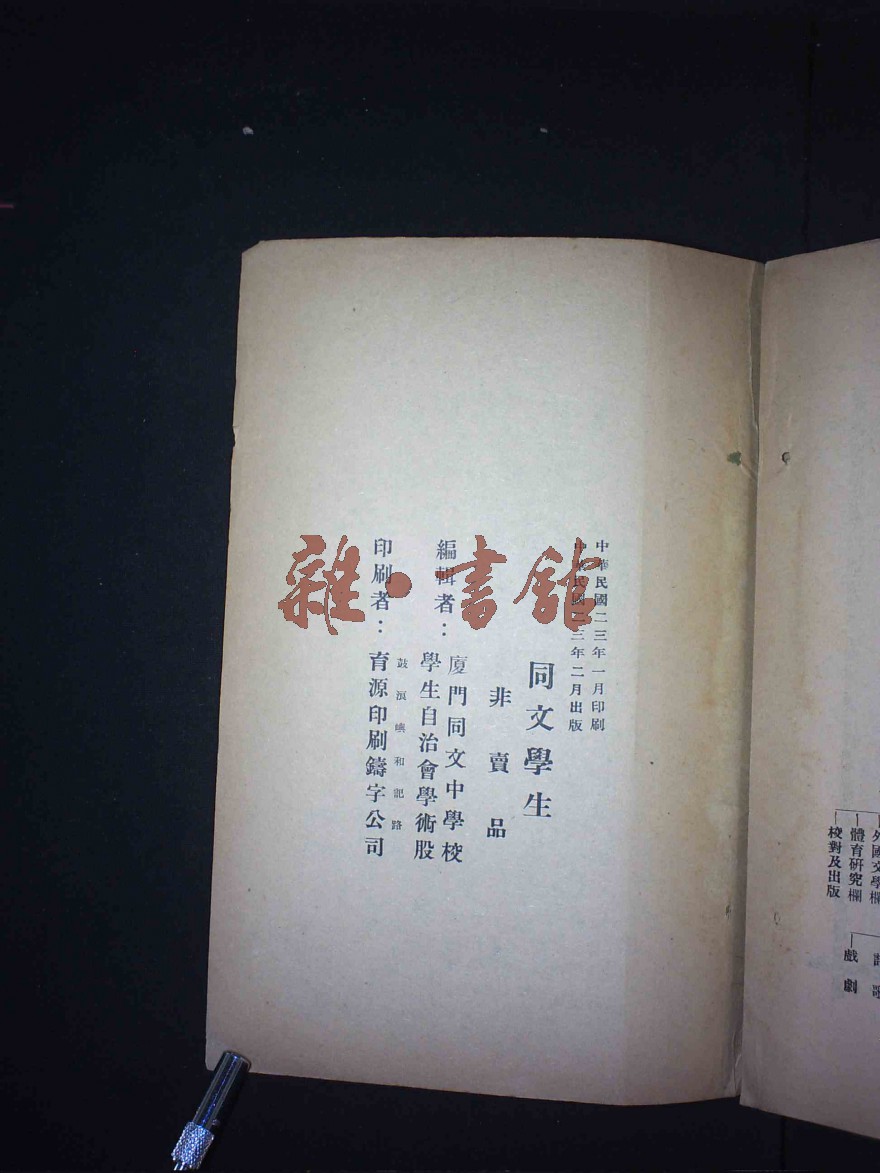 外國文學欄
體育研究欄
校對及出版
戲劇
中華民國二三年一月印刷
中華民國二三年二月出版
同文學生
非賣品
編輯者：廈門同文中學校
學生自治會學術股
鼓浪嶼和記路
印刷者：育源印刷鑄字公司
雜·書館